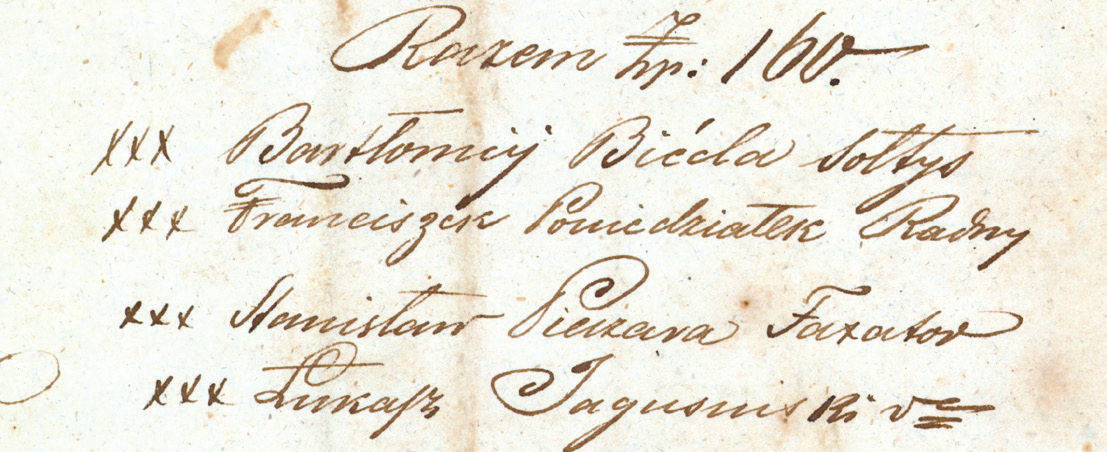 Razem Złp: 160.
xxx Bartłomiij Biéda Sołtys
xxx Franciszek Poniedziałek Radny
xxx Stanisław Pieczara Taxator
xxx Łukasz